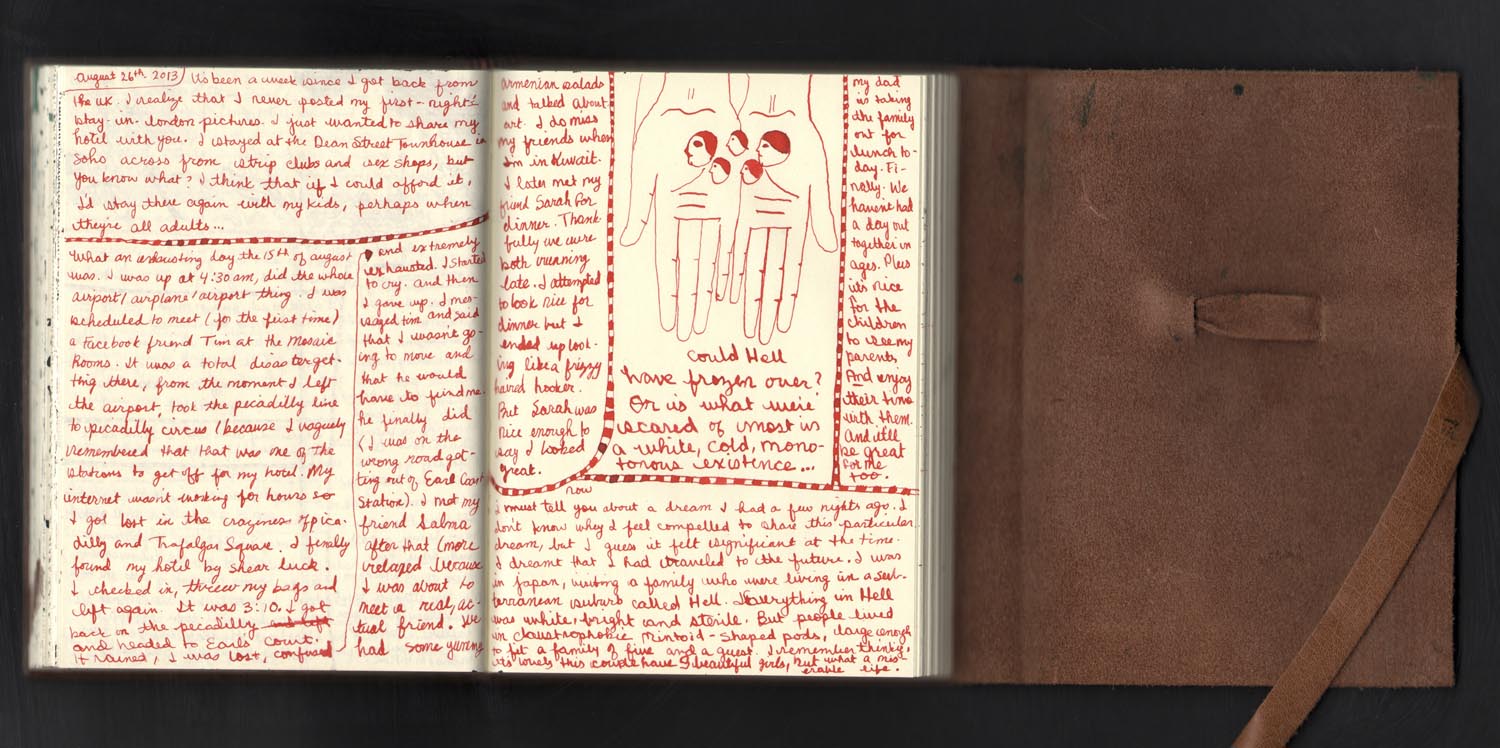 August 26th 2013) It's been a week since I got back from
the UK. I realize that I never posted my first-night-
stay-in-london pictures. I just wanted to share my
hotel with you. I stayed at the Dean Street Townhouse in
Soho across from strip clubs and sex shops, but
you know what? I think that if I could afford it,
I'd stay there again with my kids, perhaps when
they're all adults...
What an exhausting day the 15th of august
was. I was up at 4:30 am, did the whole
airport/airplane/airport thing. I was
scheduled to meet (for the first time)
a Facebook friend Tim at the Mosaic
Rooms. It was a total disaster get-
ting there, from the moment I left
the airport, took the pecadilly line
to picadilly circus (because I vaguely
remembered that that was one of the
stations to get off for my hotel. My
internet wasn't working for hours so
I got lost in the craziness of pica-
dilly and Trafalgar Square. I finally
found my hotel by shear luck.
I checked in, threw my bags and
left again. It was 3:10. I got
back on the pecadilly and left
and headed to Earls' Court.
It rained, I was lost, confused
and extremely
exhausted. I started
to cry. and then
I gave up. I mes-
saged tim and said
that I wasn't go-
ing to move and
that he would
have to find me.
he finally did
(I was on the
wrong road get-
ting out of Earl Court
Station). I met my
friend Salma
after that (more
relaxed because
I was about to
meet a real, ac-
tual friend. We
had some yummy
armenian salads
and talked about
art. I do miss
my friends when
I'm in Kuwait.
I later met my
friend Sarah for
dinner. Thank-
fully we were
both running
late. I attempted
to look nice for
dinner but I
ended up look-
ing like a frizzy
haired hooker.
But Sarah was
nice enough to
say I looked
great.
could Hell
have frozen over?
Or is what we're
scared of most is
a white, cold, mono-
tonous existence...
my dad
is taking
the family
out for
lunch to-
day. Fi-
nally. We
havent had
a day out
together in
ages. Plus
it's nice
for the
children
to see my
parents,
And enjoy
their time
with them.
And it'll
be great
for me
too.
now
I must tell you about a dream I had a few nights ago. I
don't know why I feel compelled to share this particular
dream, but I guess it felt significant at the time.
I dreamt that I had traveled to the future. I was
in Japan, visiting a family who were living in a sub-
terranean suburb called Hell. Everything in Hell
was white, bright and sterile. But people lived
in claustrophobic Mintoid-shaped pods, large enough
to fit a family of five and a guest. I remember thinking,
it's lovely this couple have 3 beautiful girls, but what a mis-
erable life.